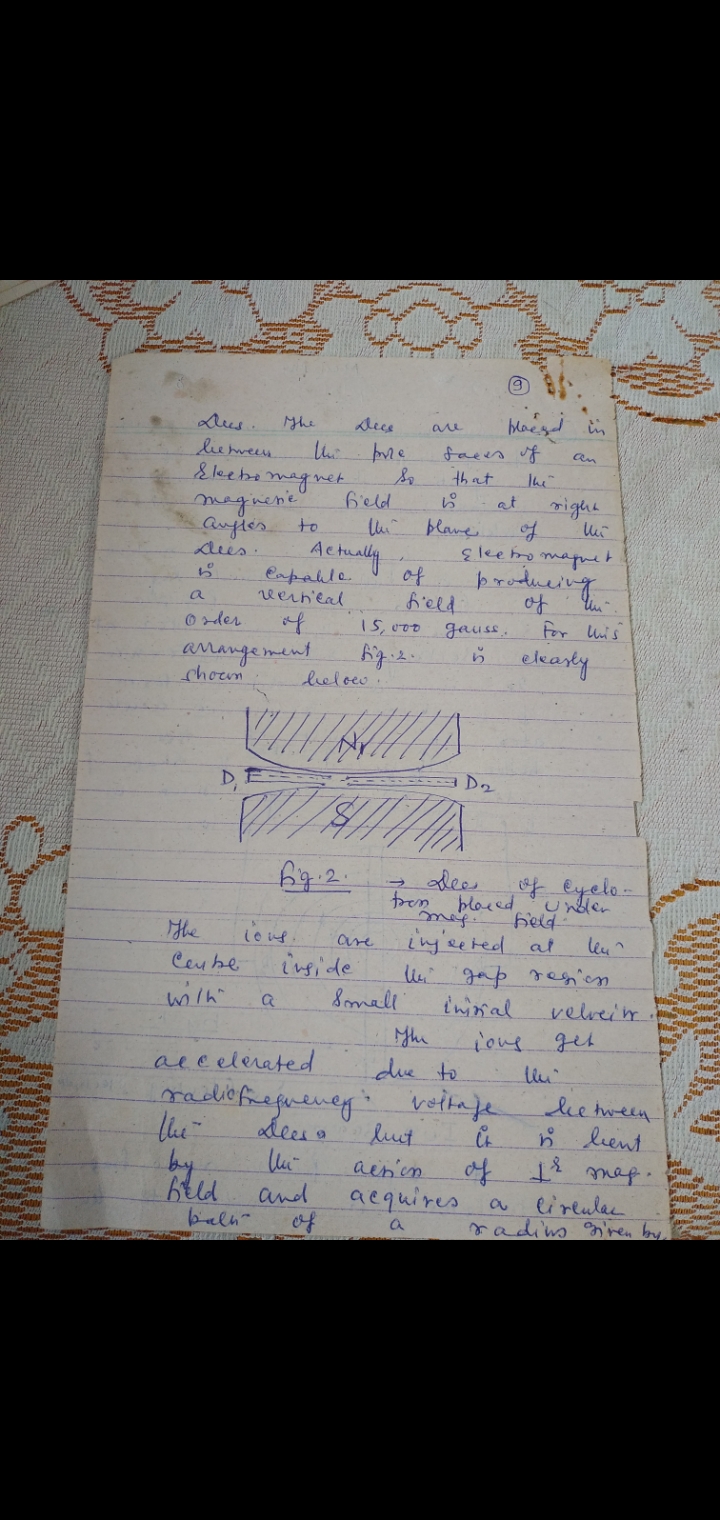 9
Dees. The Dees are placed in
between the pole faces of an
Electromagnet so that the
magnetic field is at right
angles to the plane of the
Dees. Actually, Electromagnet
is capable of producing
a vertical field of the
order of 15,000 gauss. For this
arrangement fig.2. is clearly
shown below.
N
D1 D2
S
fig.2. → Dees of cyclo-
tron placed under
mag. field.
The ions are injected at the
centre inside the gap region
with a small initial velocity.
The ions get
accelerated due to the
radiofrequency voltage between
the Dees but it is bent
by the action of ⊥r mag.
field and acquires a circular
path of a radius given by